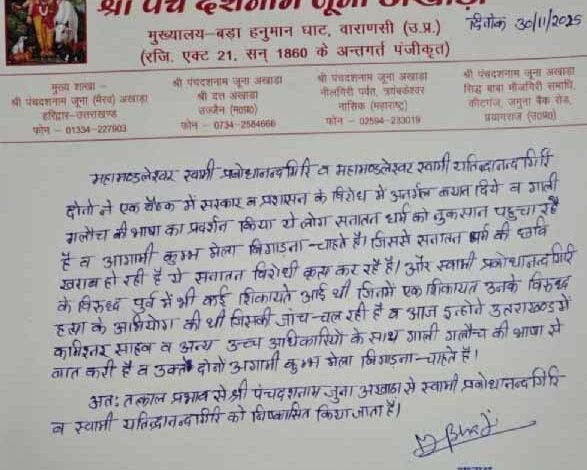 श्री पंच दशनाम जूना अखाड़ा
मुख्यालय-बड़ा हनुमान घाट, वाराणसी (उ.प्र.)
दिनांक 30/11/2025
(रजि. एक्ट 21, सन् 1860 के अन्तर्गत पंजीकृत)
मुख्य शाखा -
श्री पंचदशनाम जूना (भैरव) अखाड़ा
हरिद्वार-उत्तराखण्ड
फोन - 01334-227903
श्री पंचदशनाम जूना अखाड़ा
श्री दत्त अखाड़ा
उज्जैन (म०प्र०)
फोन - 0734-2584666
श्री पंचदशनाम जूना अखाड़ा
नीलगिरी पर्वत, त्रयंबकेश्वर
नासिक (महाराष्ट्र)
फोन - 02594-233019
श्री पंचदशनाम जूना अखाड़ा
सिद्ध बाबा मौजगिरी समाधि,
कीटगंज, जमुना बैंक रोड,
प्रयागराज (उ०प्र०)
महामण्डलेश्वर स्वामी प्रबोधानन्दगिरि व महामण्डलेश्वर स्वामी यतिन्द्रानन्दगिरि
दोनो ने एक बैठक में सरकार व प्रशासन के विरोध में अनर्गल बयान दिये व गाली
गलौच की भाषा का प्रदर्शन किया ये लोग सनातन धर्म को नुकसान पहुचा रहे
है व आगामी कुम्भ मेला बिगाड़ना-चाहते है। जिससे सनातन धर्म की छवि
खराब हो रही है ये सनातन विरोधी कृत्य कर रहे है। और स्वामी प्रबोधानन्दगिरि
के विरूध्द पूर्व में भी कई शिकायते आई थी जिनमे एक शिकायत उनके विरूध्द
हत्या के अभियोग की थी जिसकी जांच-चल रही है व आज इन्होने उत्तराखण्ड में
कमिश्नर साहब व अन्य उच्च अधिकारियो के साथ गाली गलौच की भाषा से
बात करी है व उक्त दोनों अगामी कुम्भ मेला बिगाड़ना-चाहते है।
अतः तत्काल प्रभाव से श्री पंचदशनाम जूना अखाडा से स्वामी प्रबोधानन्दगिरि
व स्वामी यतिन्द्रानन्दगिरि को निष्कासित किया जाता है।